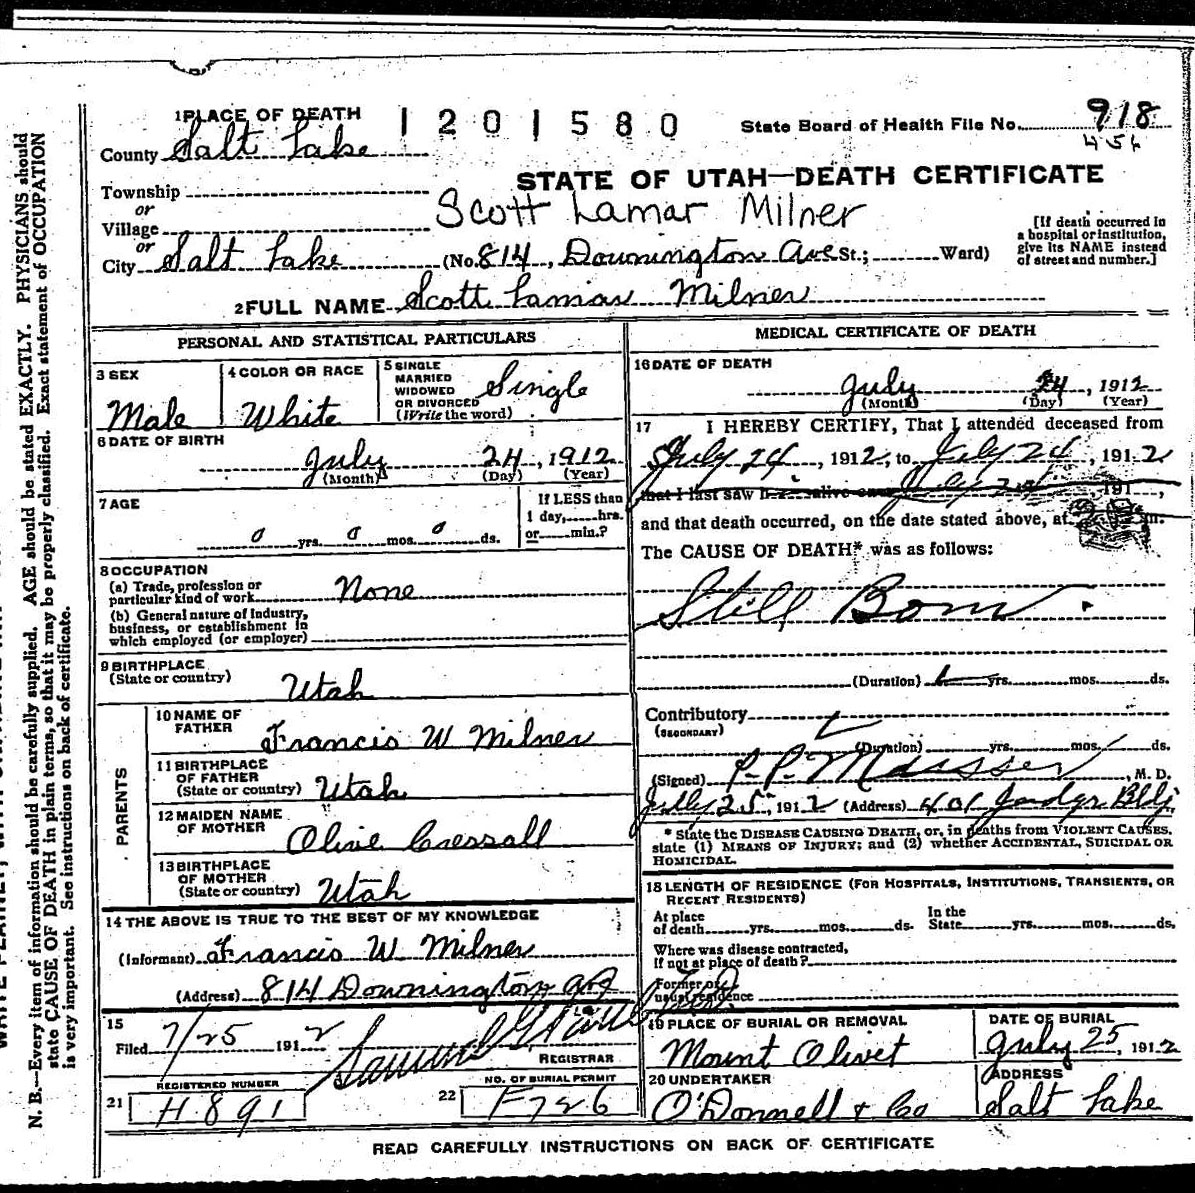 1 PLACE OF DEATH 1201580 State Board of Health File No. 918
456
County Salt Lake
STATE OF UTAH—DEATH CERTIFICATE
Township
or
Village
Scott Lamar Milner
or
City Salt Lake (No. 814, Downington Ave St.; Ward)
[If death occurred in
a hospital or institution,
give its NAME instead
of street and number.]
2 FULL NAME Scott Lamar Milner
PERSONAL AND STATISTICAL PARTICULARS
3 SEX
Male
4 COLOR OR RACE
White
5 SINGLE
MARRIED
WIDOWED
OR DIVORCED
(Write the word)
Single
6 DATE OF BIRTH
July 24, 1912
(Month) (Day) (Year)
7 AGE
0 yrs. 0 mos. 0 ds.
If LESS than
1 day, hrs.
or min.?
8 OCCUPATION
(a) Trade, profession or
particular kind of work None
(b) General nature of industry,
business, or establishment in
which employed (or employer)
9 BIRTHPLACE
(State or country) Utah
PARENTS
10 NAME OF
FATHER Francis W Milner
11 BIRTHPLACE
OF FATHER
(State or country) Utah
12 MAIDEN NAME
OF MOTHER Olive Cressall
13 BIRTHPLACE
OF MOTHER
(State or country) Utah
14 THE ABOVE IS TRUE TO THE BEST OF MY KNOWLEDGE
(Informant) Francis W. Milner
(Address) 814 Downington
15
Filed 7/25 1912
REGISTRAR
REGISTERED NUMBER
21 H891
NO. OF BURIAL PERMIT
22 F726
MEDICAL CERTIFICATE OF DEATH
16 DATE OF DEATH
July 24, 1912
(Month) (Day) (Year)
17 I HEREBY CERTIFY, That I attended deceased from
July 24, 1912, to July 24, 1912
that I last saw h alive on July 24 191 ,
and that death occurred, on the date stated above, at m.
The CAUSE OF DEATH* was as follows:
Still Born.
(Duration) yrs. mos. ds.
Contributory
(SECONDARY)
(Duration) yrs. mos. ds.
(Signed) P.P. Musser, M. D.
July 25, 1912 (Address) 401 Judge Bldg
* State the DISEASE CAUSING DEATH, or, in deaths from VIOLENT CAUSES,
state (1) MEANS OF INJURY; and (2) whether ACCIDENTAL, SUICIDAL OR
HOMICIDAL.
18 LENGTH OF RESIDENCE (FOR HOSPITALS, INSTITUTIONS, TRANSIENTS, OR
RECENT RESIDENTS)
At place
of death yrs. mos. ds. In the
State yrs. mos. ds.
Where was disease contracted,
If not at place of death?
Former or
usual residence
19 PLACE OF BURIAL OR REMOVAL
Mount Olivet
DATE OF BURIAL
July 25, 1912
20 UNDERTAKER
O'Donnell & Co
ADDRESS
Salt Lake
READ CAREFULLY INSTRUCTIONS ON BACK OF CERTIFICATE
N. B.—Every item of information should be carefully supplied. AGE should be stated EXACTLY. PHYSICIANS should
state CAUSE OF DEATH in plain terms, so that it may be properly classified. Exact statement of OCCUPATION
is very important. See instructions on back of certificate.